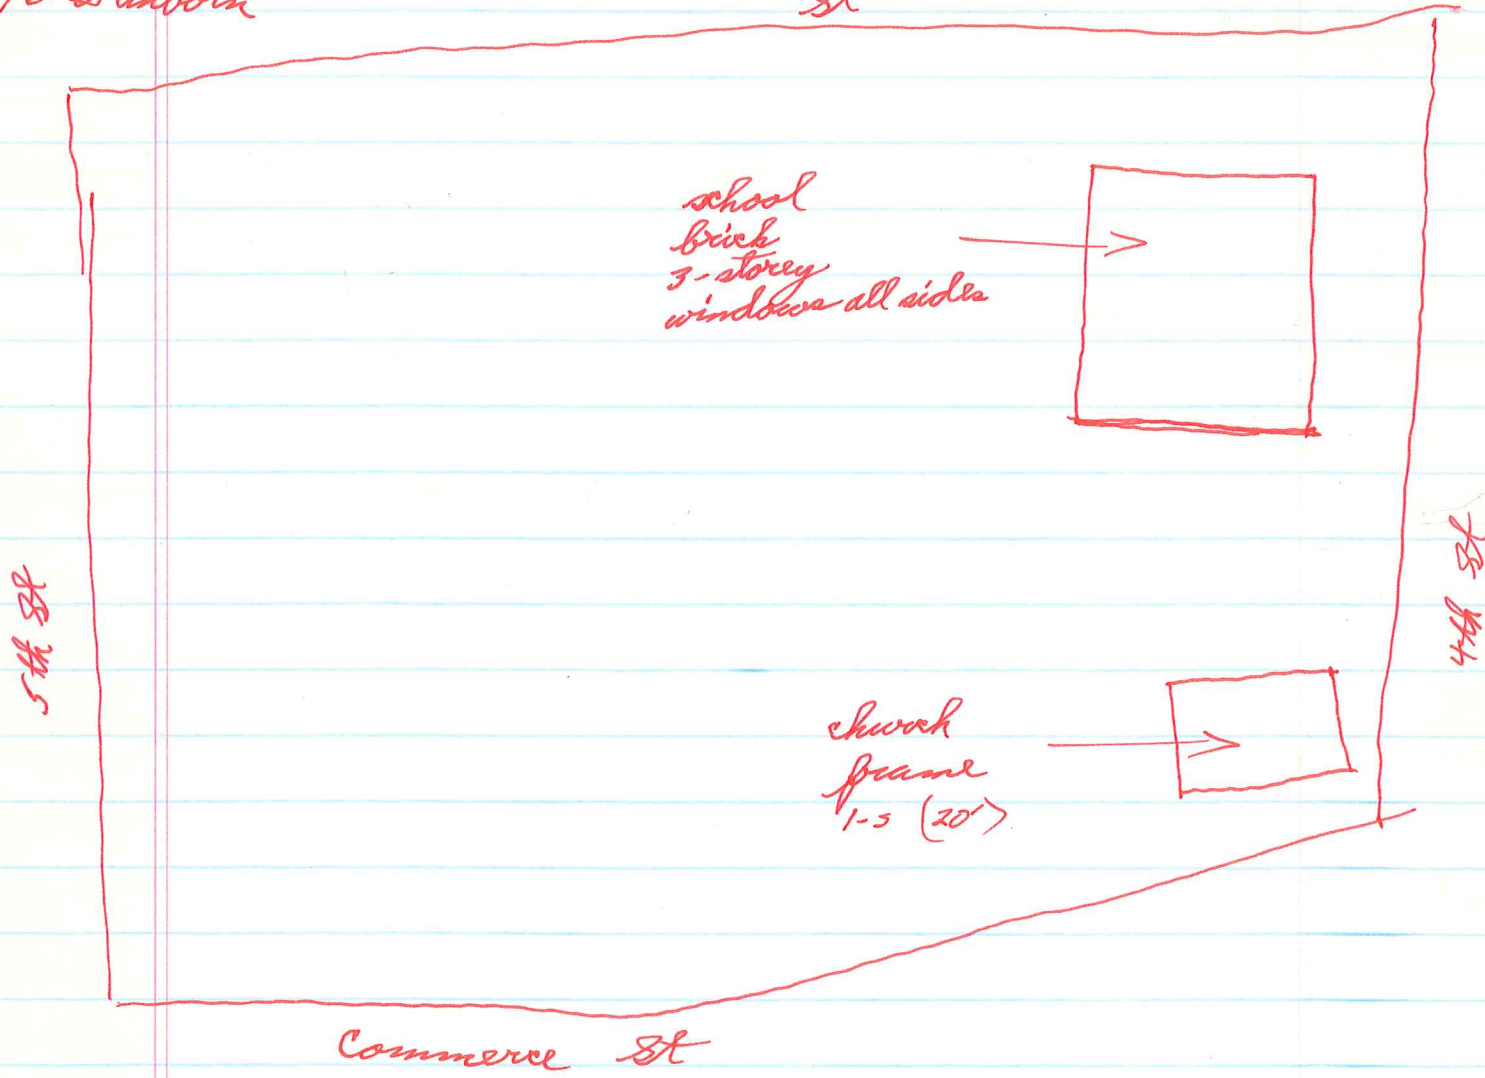 Sanborn St
school
brick
3-storey
windows all sides
5th St
4th St
church
frame
1-s (20')
Commerce St